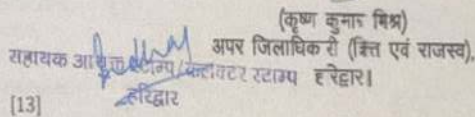 (कृष्ण कुमार मिश्र)
अपर जिलाधिकरी (वित्त एवं राजस्व),
सहायक आयुक्त स्टाम्प/कलक्टर स्टाम्प हरिद्वार।
हरिद्वार
[13]